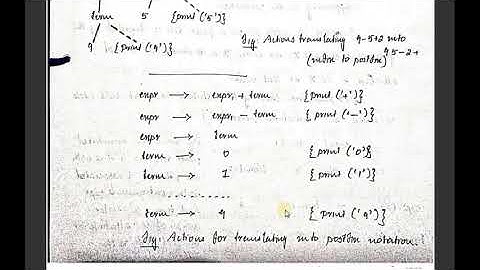 term 5 {print ('5')}
9 {print ('9')}
Fig. Actions translating 9-5+2 into
(infix to postfix) 95-2+
expr → expr1 + term {print ('+')}
expr → expr1 - term {print ('-')}
expr → term
term → 0 {print ('0')}
term → 1 {print ('1')}
term → 9 {print ('9')}
Fig: Actions for translating into postfix notation.